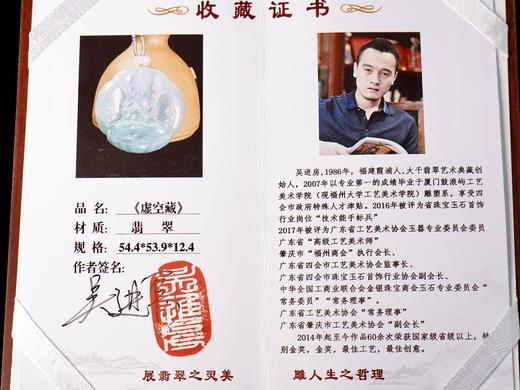 收藏证书
品 名：《虚空藏》
材 质： 翡 翠
规 格：54.4*53.9*12.4
作者签名：
吴进房
展翡翠之灵美
吴进房，1986年，福建霞浦人，大千翡翠艺术典藏创
始人，2007年以专业第一的成绩毕业于厦门鼓浪屿工艺
美术学院（现福州大学工艺美术学院）雕塑系，享受四
会市政府特殊人才津贴。2016年被评为肇庆市珠宝玉石首饰
行业岗位“技术能手标兵”
2017年被评为广东省工艺美术协会玉器专业委员会委员
广东省“高级工艺美术师”
肇庆市“福州商会”执行会长、
广东省四会市工艺美术协会监事长、
广东省四会市珠宝玉石首饰行业协会副会长、
中华全国工商业联合会金银珠宝商会玉石专业委员会“
常务委员”“常务理事”。
广东省工艺美术协会“常务理事”
广东省肇庆市工艺美术协会“副会长”
2014年起至今作品60余次荣获国家级省级以上，特
别金奖，金奖，最佳工艺，最佳创意。
雕人生之哲理